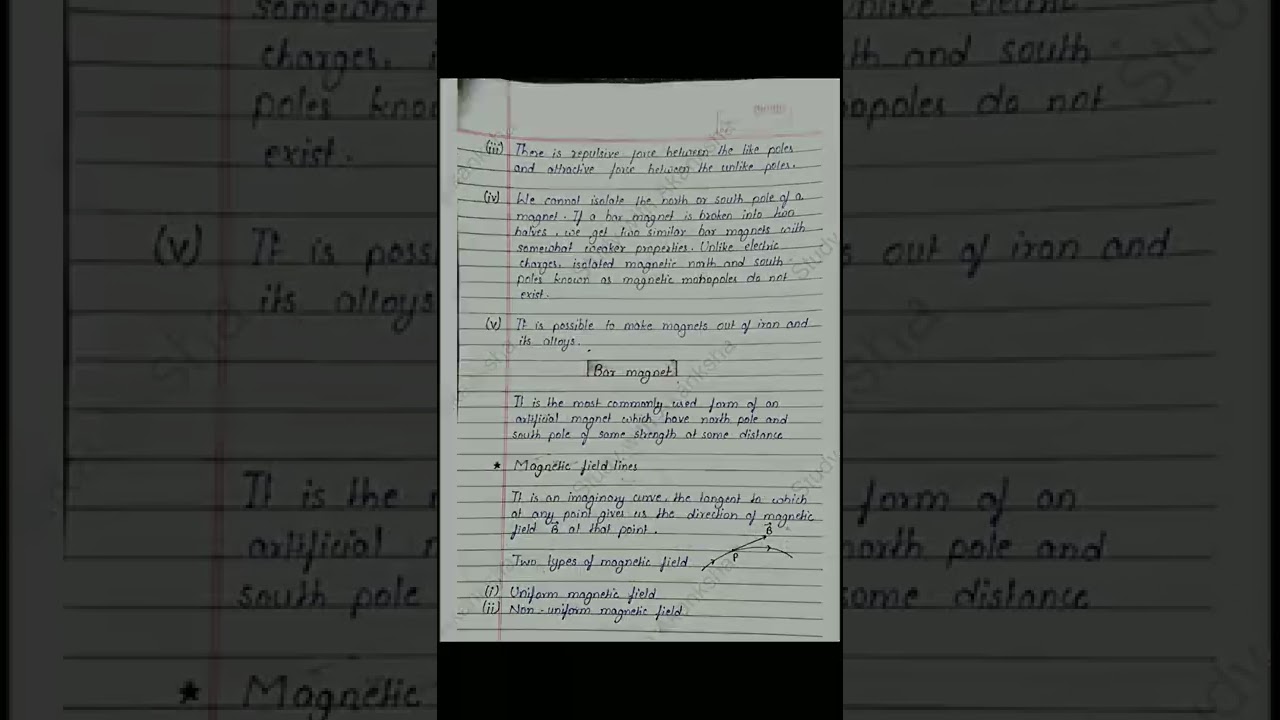 (iii) There is repulsive force between the like poles
and attractive force between the unlike poles.
(iv) We cannot isolate the north or south pole of a
magnet. If a bar magnet is broken into two
halves, we get two similar bar magnets with
somewhat weaker properties. Unlike electric
charges, isolated magnetic north and south
poles known as magnetic monopoles do not
exist.
(v) It is possible to make magnets out of iron and
its alloys.
[Bar magnet]
It is the most commonly used form of an
artificial magnet which have north pole and
south pole of same strength at some distance
★ Magnetic field lines
It is an imaginary curve, the tangent to which
at any point gives us the direction of magnetic
field B⃗ at that point.
B⃗
P
Two types of magnetic field
(i) Uniform magnetic field
(ii) Non-uniform magnetic field